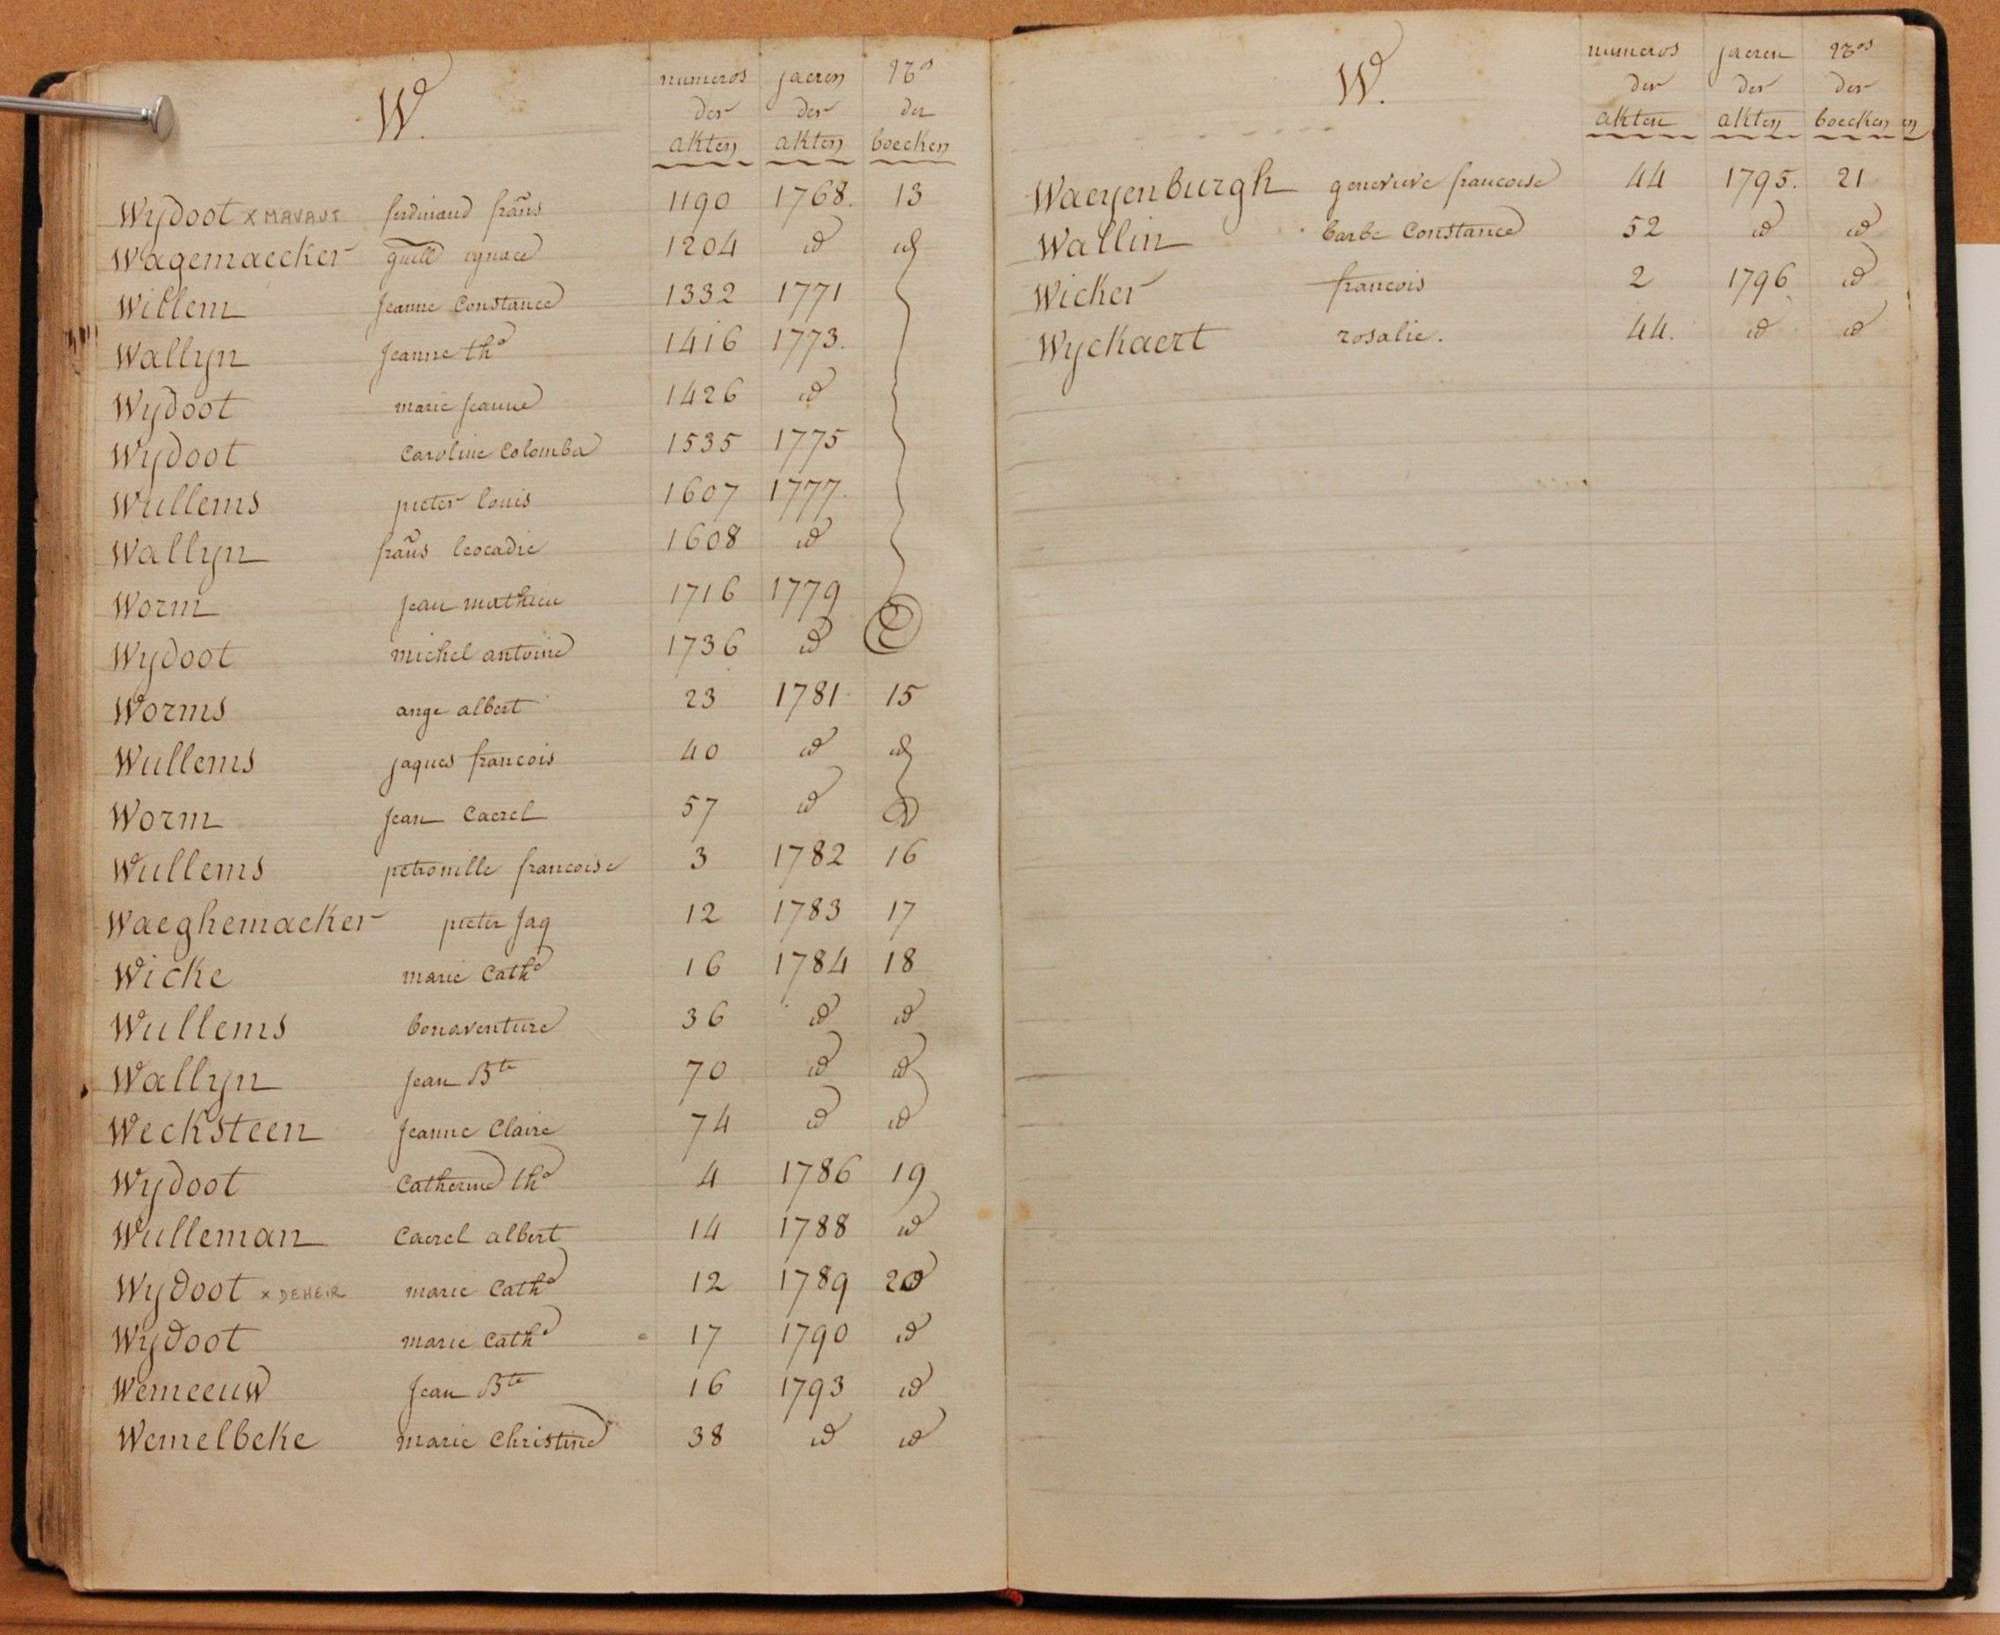 W.
numeros jaeren Nos
der der der
akten akten boecken
Wydoot x MAVAUT ferdinand frans 1190 1768. 13
Wagemaecker guill ignace 1204 id id
Willem Jeanne Constance 1332 1771
Wallyn Jeanne the 1416 1773.
Wydoot marie Jeanne 1426 id
Wydoot Caroline Colomba 1535 1775
Wullems pieter louis 1607 1777.
Wallyn frans leocadie 1608 id
Worm jean mathieu 1716 1779
Wydoot michel antoine 1736 id
Worms ange albert 23 1781 15
Wullems jaques francois 40 id id
Worm jean Caerel 57 id id
Wullems petronille francoise 3 1782 16
Waeghemacker pieter jaq 12 1783 17
Wicke marie Cathe 16 1784 18
Wullems bonaventure 36 id id
Wallyn jean Bte 70 id id
Wecksteen jeanne Claire 74 id id
Wydoot Catherine the 4 1786 19
Wulleman Caerel albert 14 1788 id
Wydoot x DEHEIR marie Cathe 12 1789 20
Wydoot marie Cathe 17 1790 id
Wemeeuw jean Bte 16 1793 id
Wemelbeke marie Christine 38 id id
W.
numeros jaeren Nos
der der der
akten akten boecken
Waeyenburgh genevieve francoise 44 1795. 21
Wallin barbe Constance 52 id id
Wicker francois 2 1796 id
Wyckaert rosalie. 44. id id